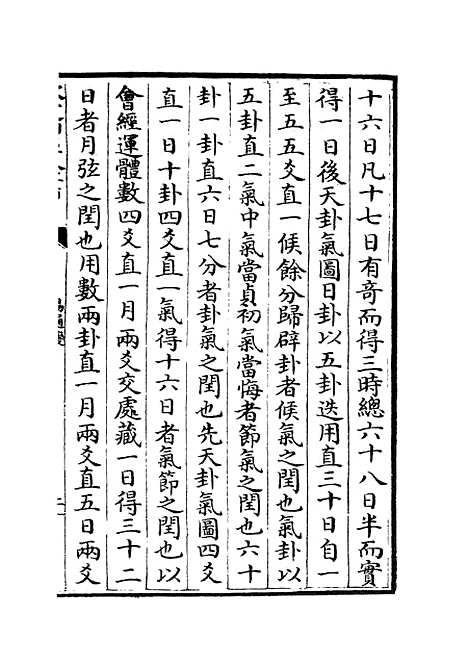 十六日凡十七日有奇而得三時總六十八日半而實
得一日後天卦氣圖日卦以五卦迭用直三十日自一
至五五爻直一候餘分歸辟卦者候氣之閏也氣卦以
五卦直二氣中氣當貞初氣當悔者節氣之閏也六十
卦一卦直六日七分者卦氣之閏也先天卦氣圖四爻
直一日十卦四爻直一氣得十六日者氣節之閏也以
會經運體數四爻直一月兩爻交處藏一日得三十二
日者月弦之閏也用數兩卦直一月兩爻直五日兩爻